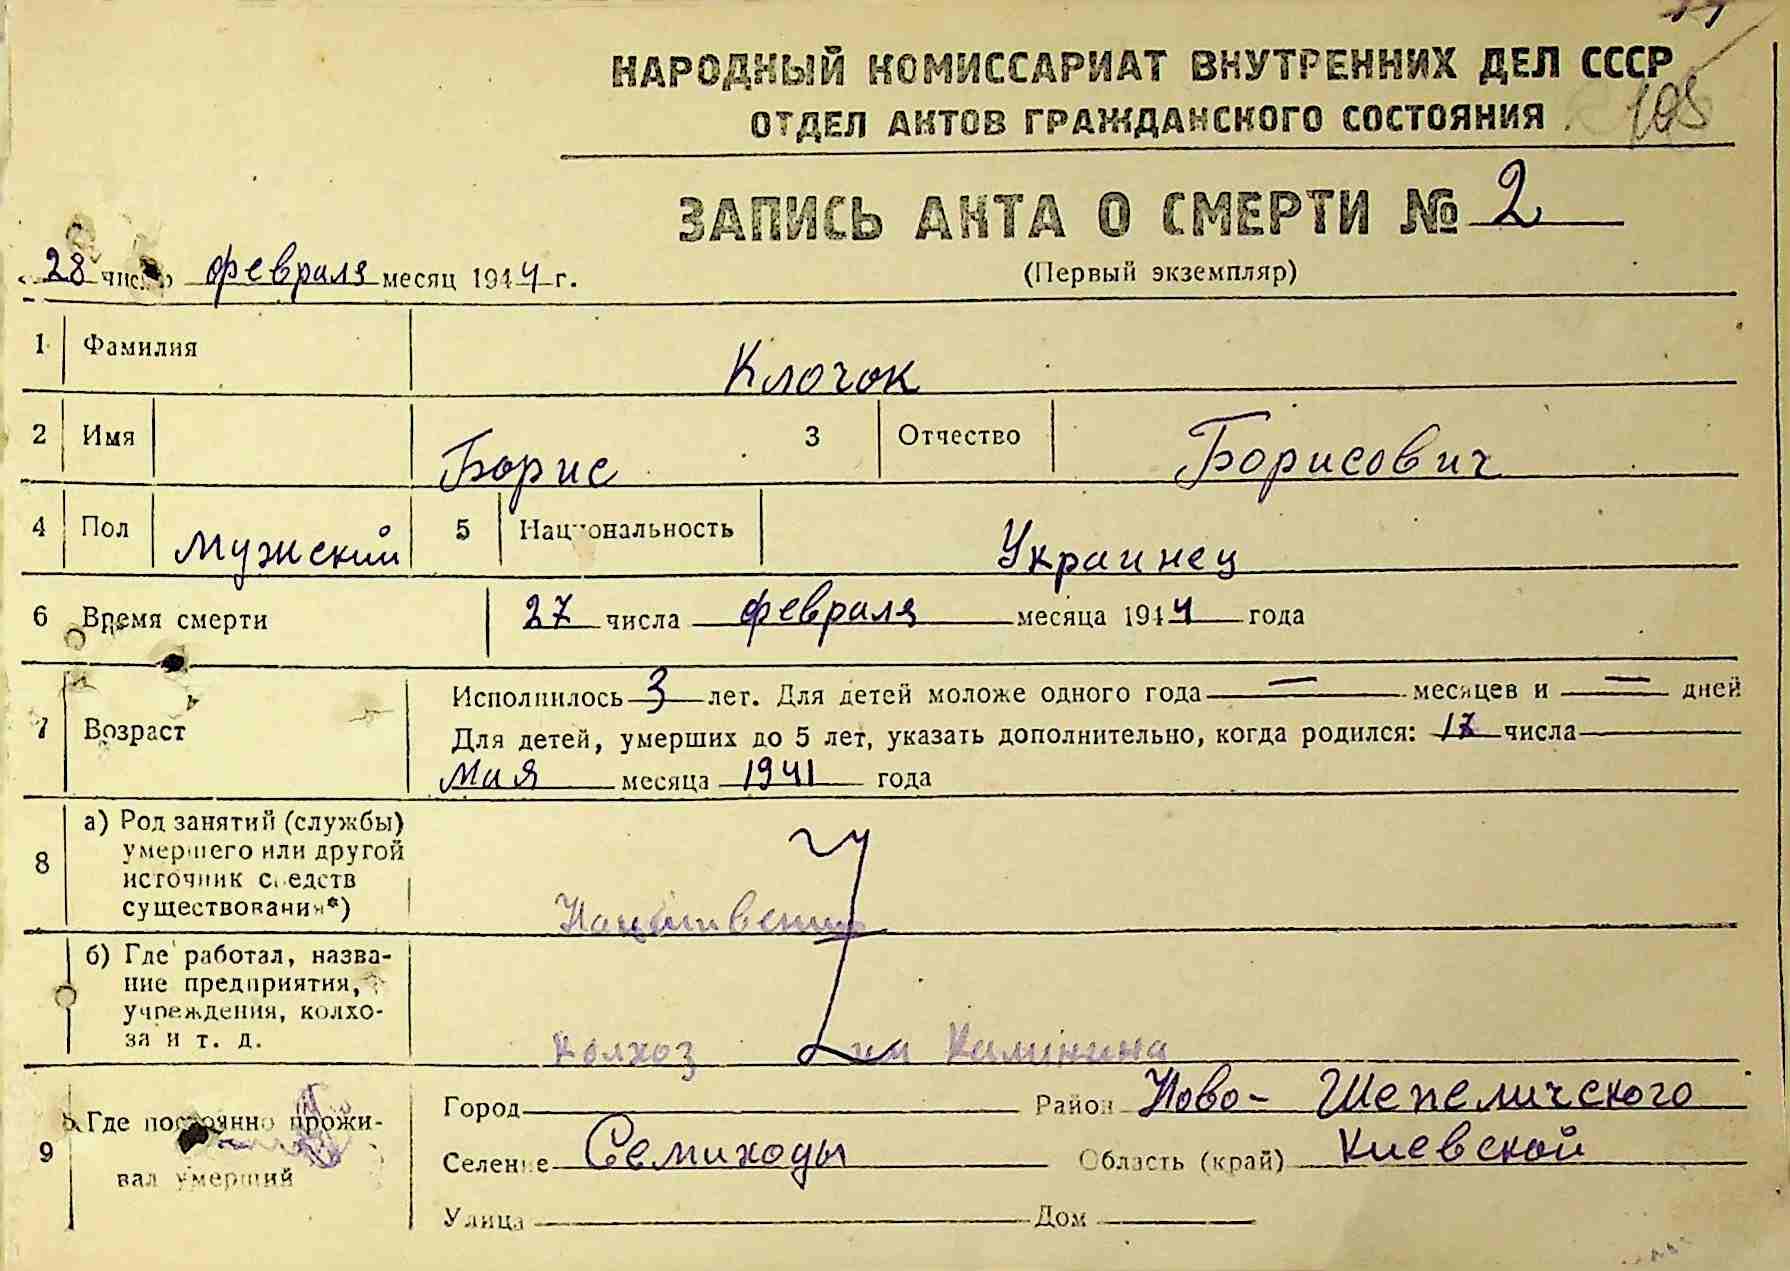 НАРОДНЫЙ КОМИССАРИАТ ВНУТРЕННИХ ДЕЛ СССР
ОТДЕЛ АКТОВ ГРАЖДАНСКОГО СОСТОЯНИЯ 108
ЗАПИСЬ АКТА О СМЕРТИ № 2
28 число февраля месяц 1944 г.
(Первый экземпляр)
1 Фамилия Клочок
2 Имя Борис 3 Отчество Борисович
4 Пол Мужский 5 Национальность Украинец
6 Время смерти 27 числа февраля месяца 1944 года
Исполнилось 3 лет. Для детей моложе одного года — месяцев и — дней
7 Возраст
Для детей, умерших до 5 лет, указать дополнительно, когда родился: 17 числа
Мая месяца 1941 года
8 а) Род занятий (службы)
умершего или другой
источник средств
существования*)
б) Где работал, назва-
ние предприятия,
учреждения, колхо-
за и т. д. колхоз им Калинина
Город Район Ново-Шепеличского
9 Где постоянно прожи-
вал умерший
Селение Семиходы Область (край) Киевской
Улица Дом